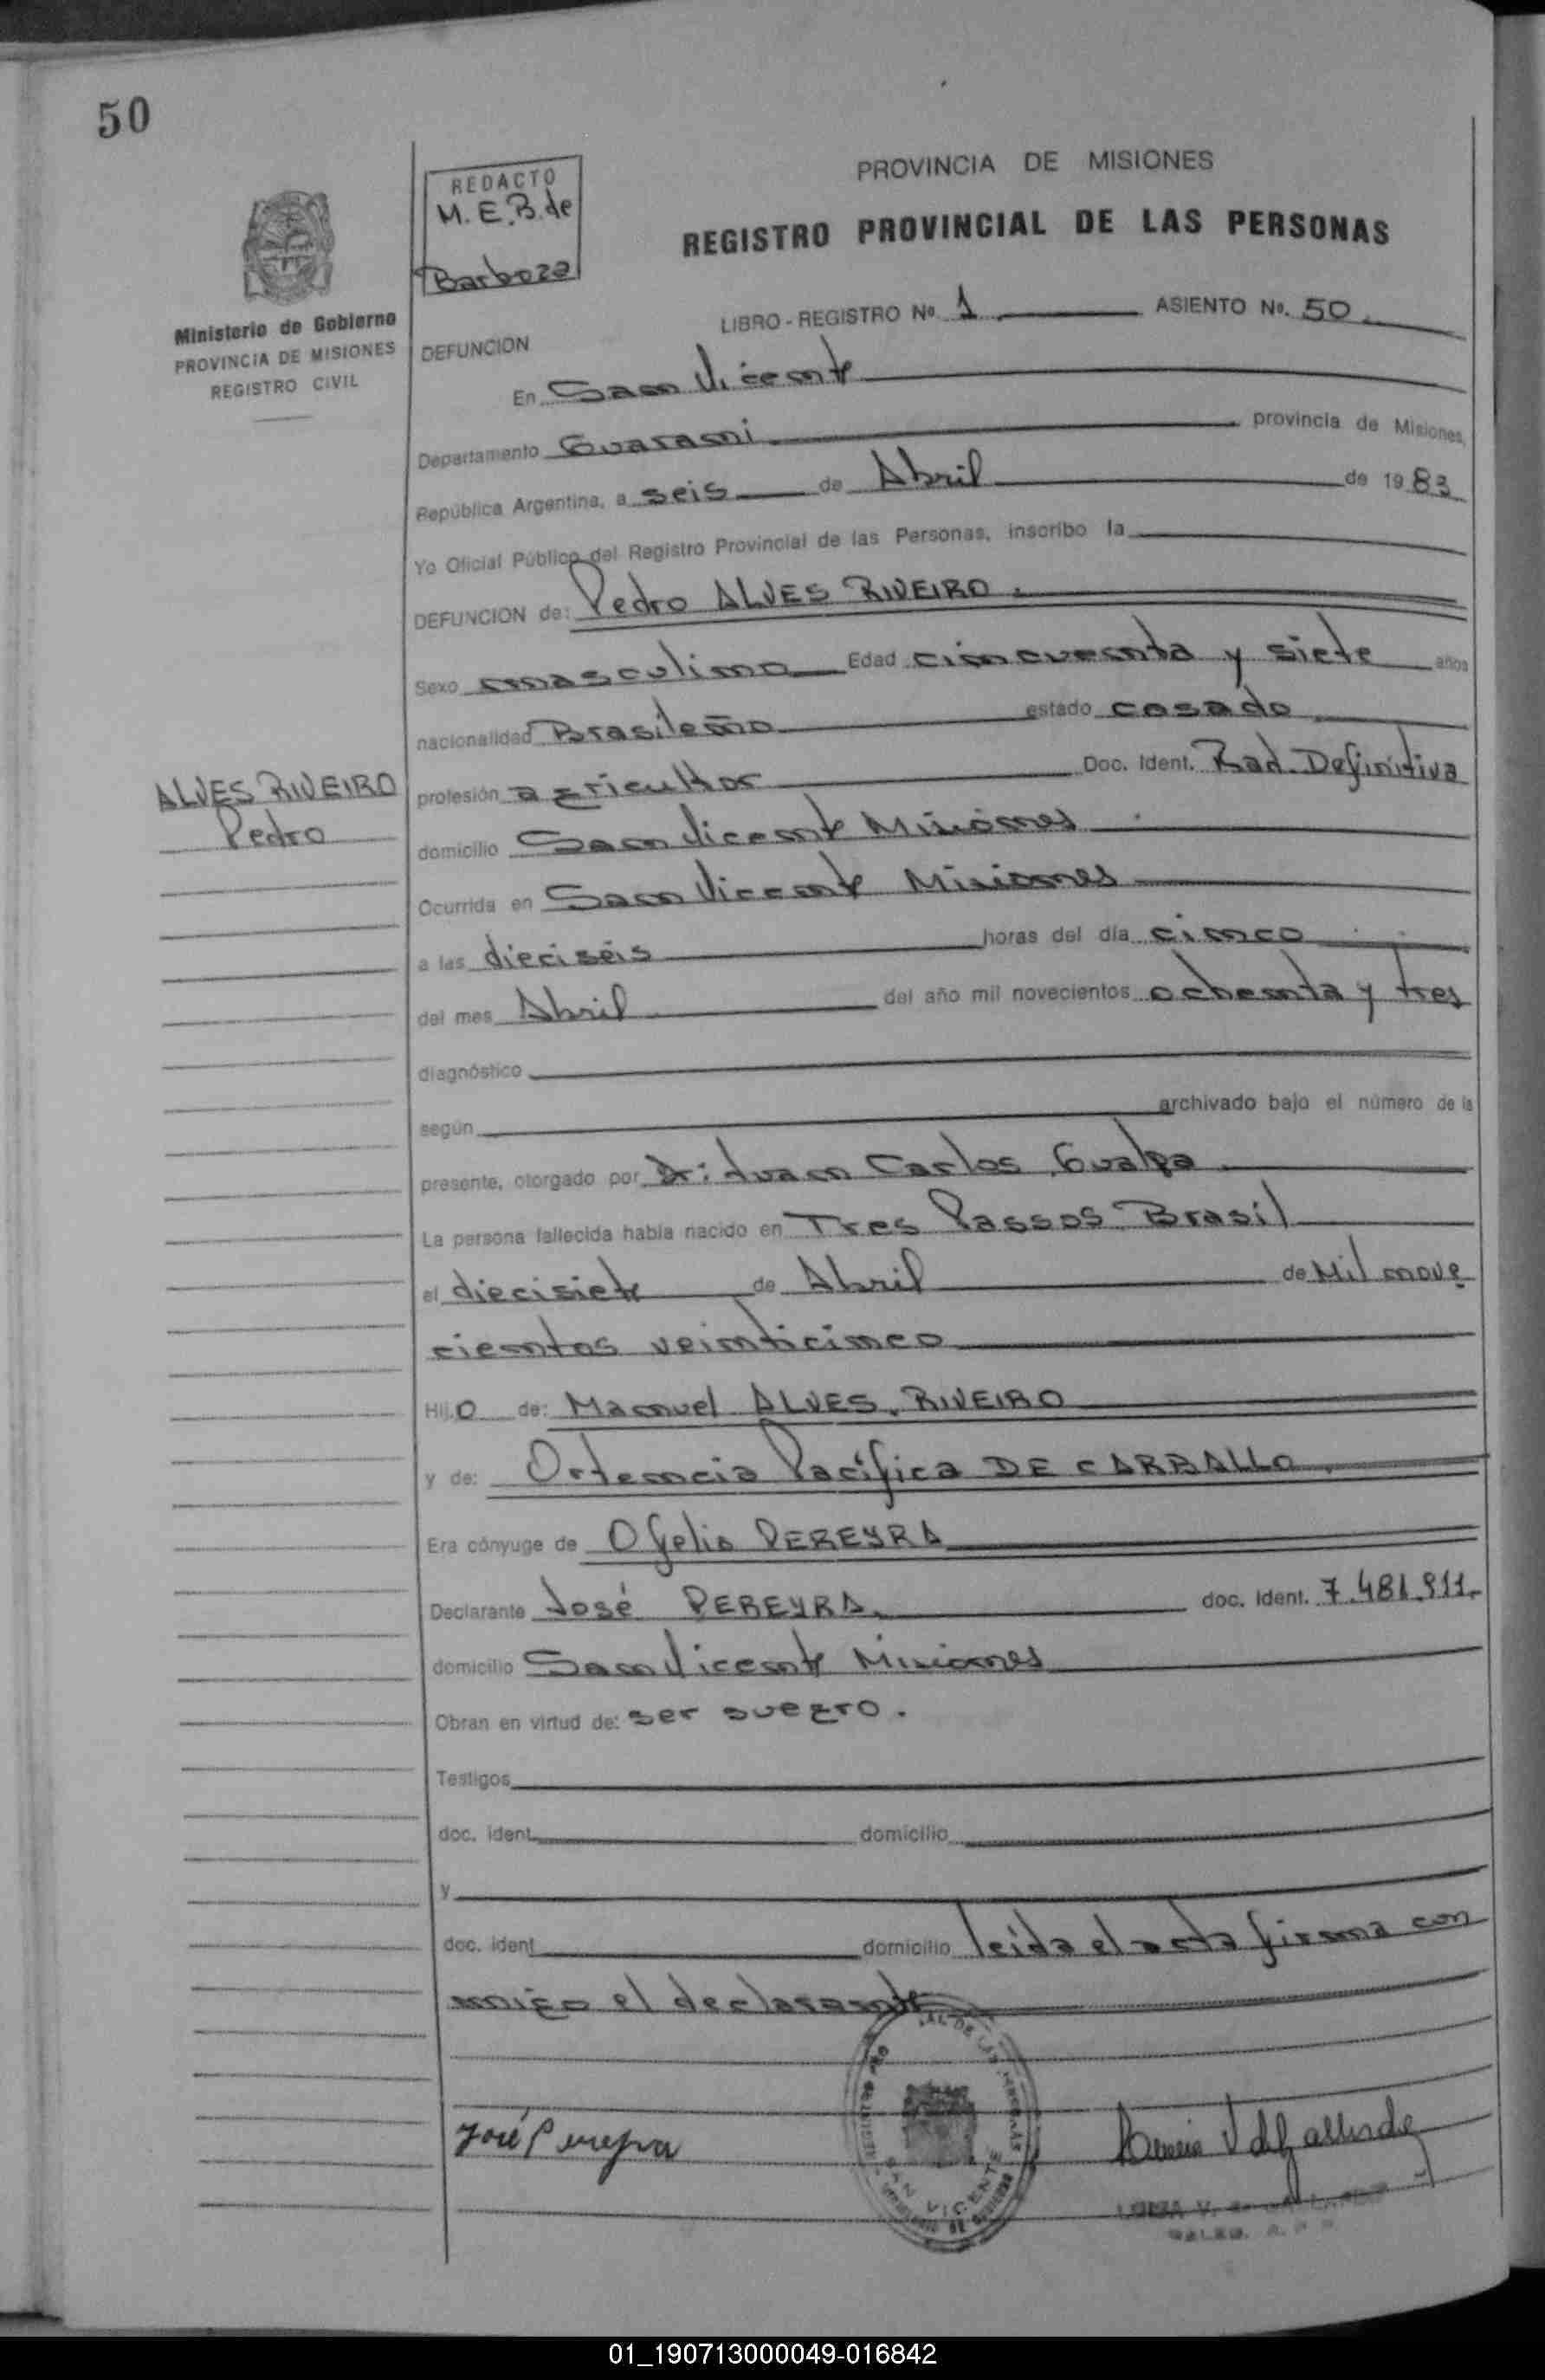 50
REDACTO
M. E. B. de
Barboza
PROVINCIA DE MISIONES
REGISTRO PROVINCIAL DE LAS PERSONAS
Ministerio de Gobierno
PROVINCIA DE MISIONES
REGISTRO CIVIL
LIBRO - REGISTRO No. 1 ASIENTO No. 50
DEFUNCION
En San Vicente
Departamento Guarani provincia de Misiones,
República Argentina, a seis de Abril de 1983
Yo Oficial Público del Registro Provincial de las Personas, inscribo la
DEFUNCION de: Pedro ALVES RIVEIRO.
Sexo masculino Edad cincuenta y siete años
nacionalidad Brasileño estado casado
ALVES RIVEIRO
Pedro
profesión agricultor Doc. Ident. Rad. Definitiva
domicilio San Vicente Misiones
Ocurrida en San Vicente Misiones
a las dieciséis horas del día cinco
del mes Abril del año mil novecientos ochenta y tres
diagnóstico
según archivado bajo el número de la
presente, otorgado por Dr: Juan Carlos Gualpa
La persona fallecida había nacido en Tres Passos Brasil
el diecisiete de Abril de Mil nove
cientos veinticinco
Hijo de: Manuel ALVES. RIVEIRO
y de: Ortencia Pacífica DE CARBALLO
Era cónyuge de Ofelia PEREYRA
Declarante José PEREYRA. doc. Ident. 7.481.911.
domicilio San Vicente Misiones
Obran en virtud de: ser suegro.
Testigos
doc. ident domicilio
y
doc. ident domicilio leída el acta firma con
migo el declarante
José Pereyra
SAN VICENTE
01_190713000049-016842